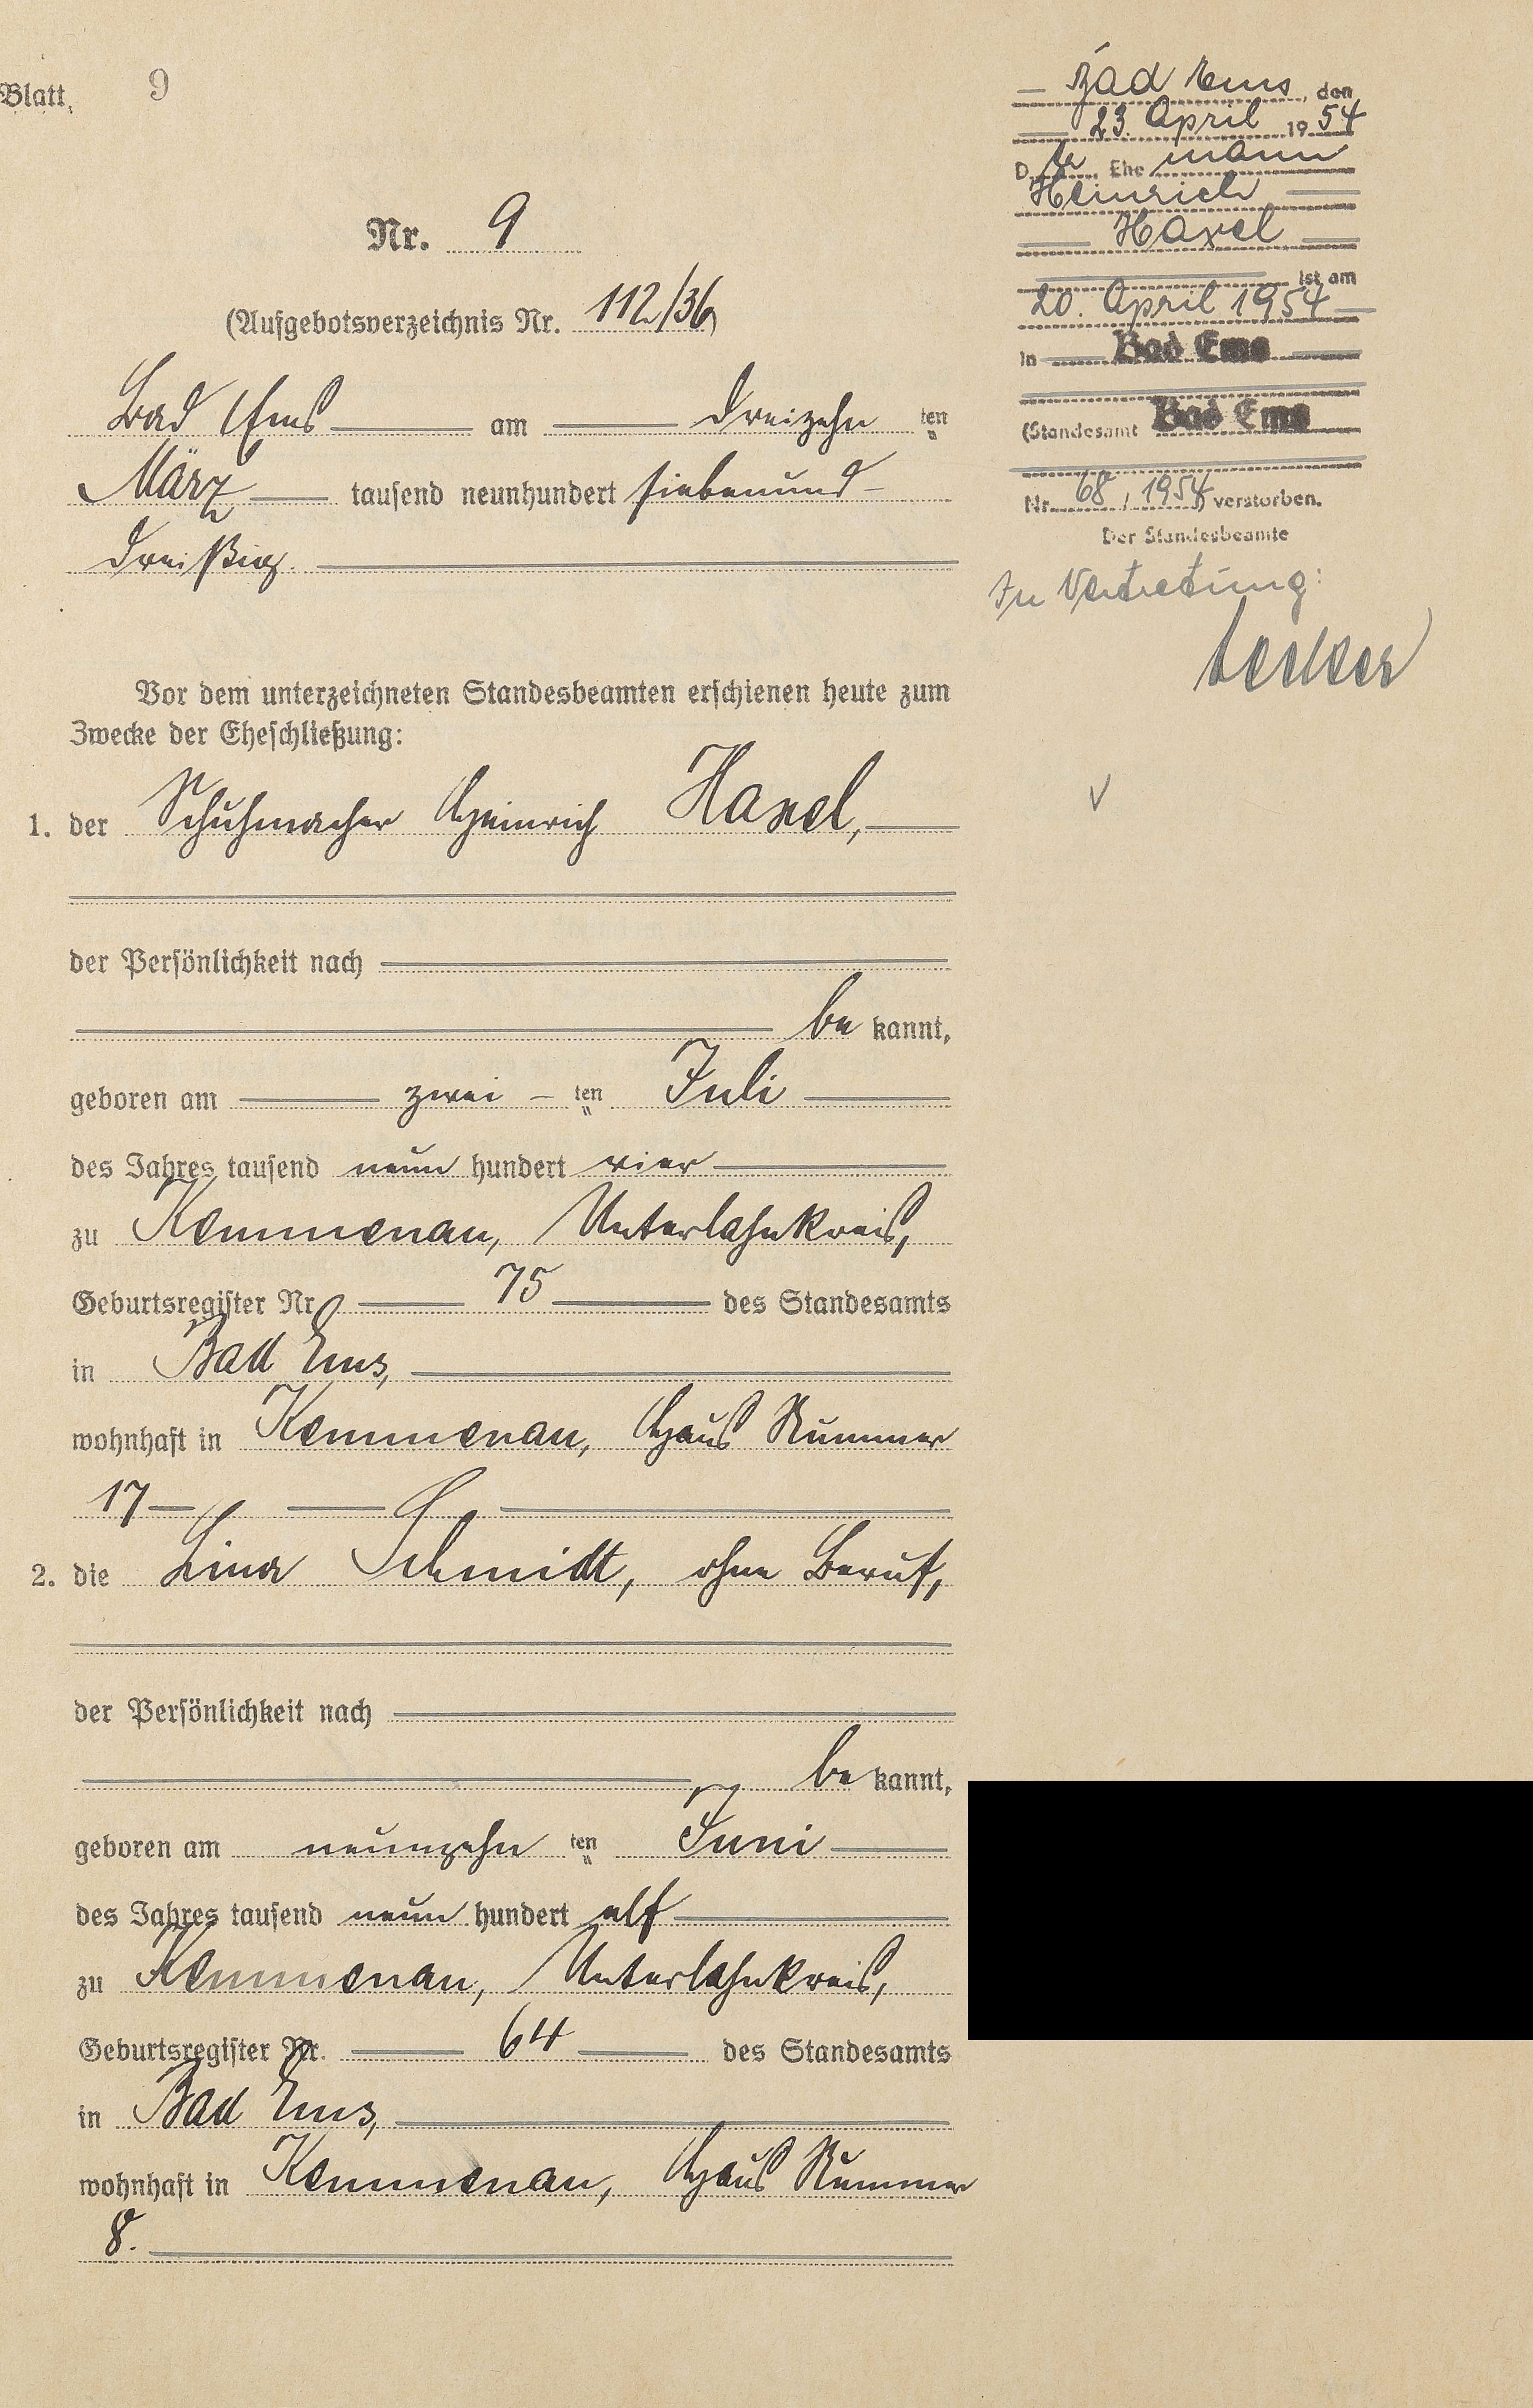 Blatt, 9
Nr. 9
(Aufgebotsverzeichnis Nr. 112/36)
Bad Ems am dreizehn ten
März tausend neunhundert siebenund-
dreißig.
Vor dem unterzeichneten Standesbeamten erschienen heute zum
Zwecke der Eheschließung:
1. der Schuhmacher Heinrich Haxel,
der Persönlichkeit nach
be kannt,
geboren am zwei - ten Juli
des Jahres tausend neun hundert vier
zu Kemmenau, Unterlahnkreis,
Geburtsregister Nr. 75 des Standesamts
in Bad Ems,
wohnhaft in Kemmenau, Haus Nummer
17
2. die Lina Schmidt, ohne Beruf,
der Persönlichkeit nach
be kannt,
geboren am neunzehn ten Juni
des Jahres tausend neun hundert elf
zu Kemmenau, Unterlahnkreis,
Geburtsregister Nr. 64 des Standesamts
in Bad Ems,
wohnhaft in Kemmenau, Haus Nummer
8.
Bad Ems, den
23. April 1954
D er Ehe mann
Heinrich
Haxel
ist am
20. April 1954
in Bad Ems
(Standesamt Bad Ems
Nr. 68, 1954) verstorben.
Der Standesbeamte
In Vertretung: